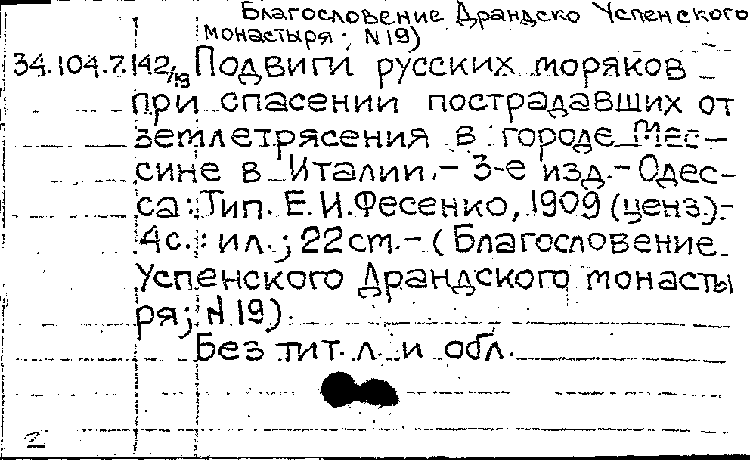 Благословение Драндско Успенского
монастыря; N19)
34.104.7.142/19 Подвиги русских моряков
при спасении пострадавших от
землетрясения в городе Мес-
сине в Италии.- 3-е изд.- Одес-
са: Тип. Е.И.Фесенко, 1909 (ценз.).-
4с.: ил.; 22 cm.- (Благословение
Успенского Драндского монасты
ря; N 19)
Без тит. л. и обл.
2